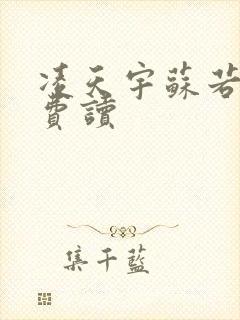 凌天宇蘇若
費讀
集千藍